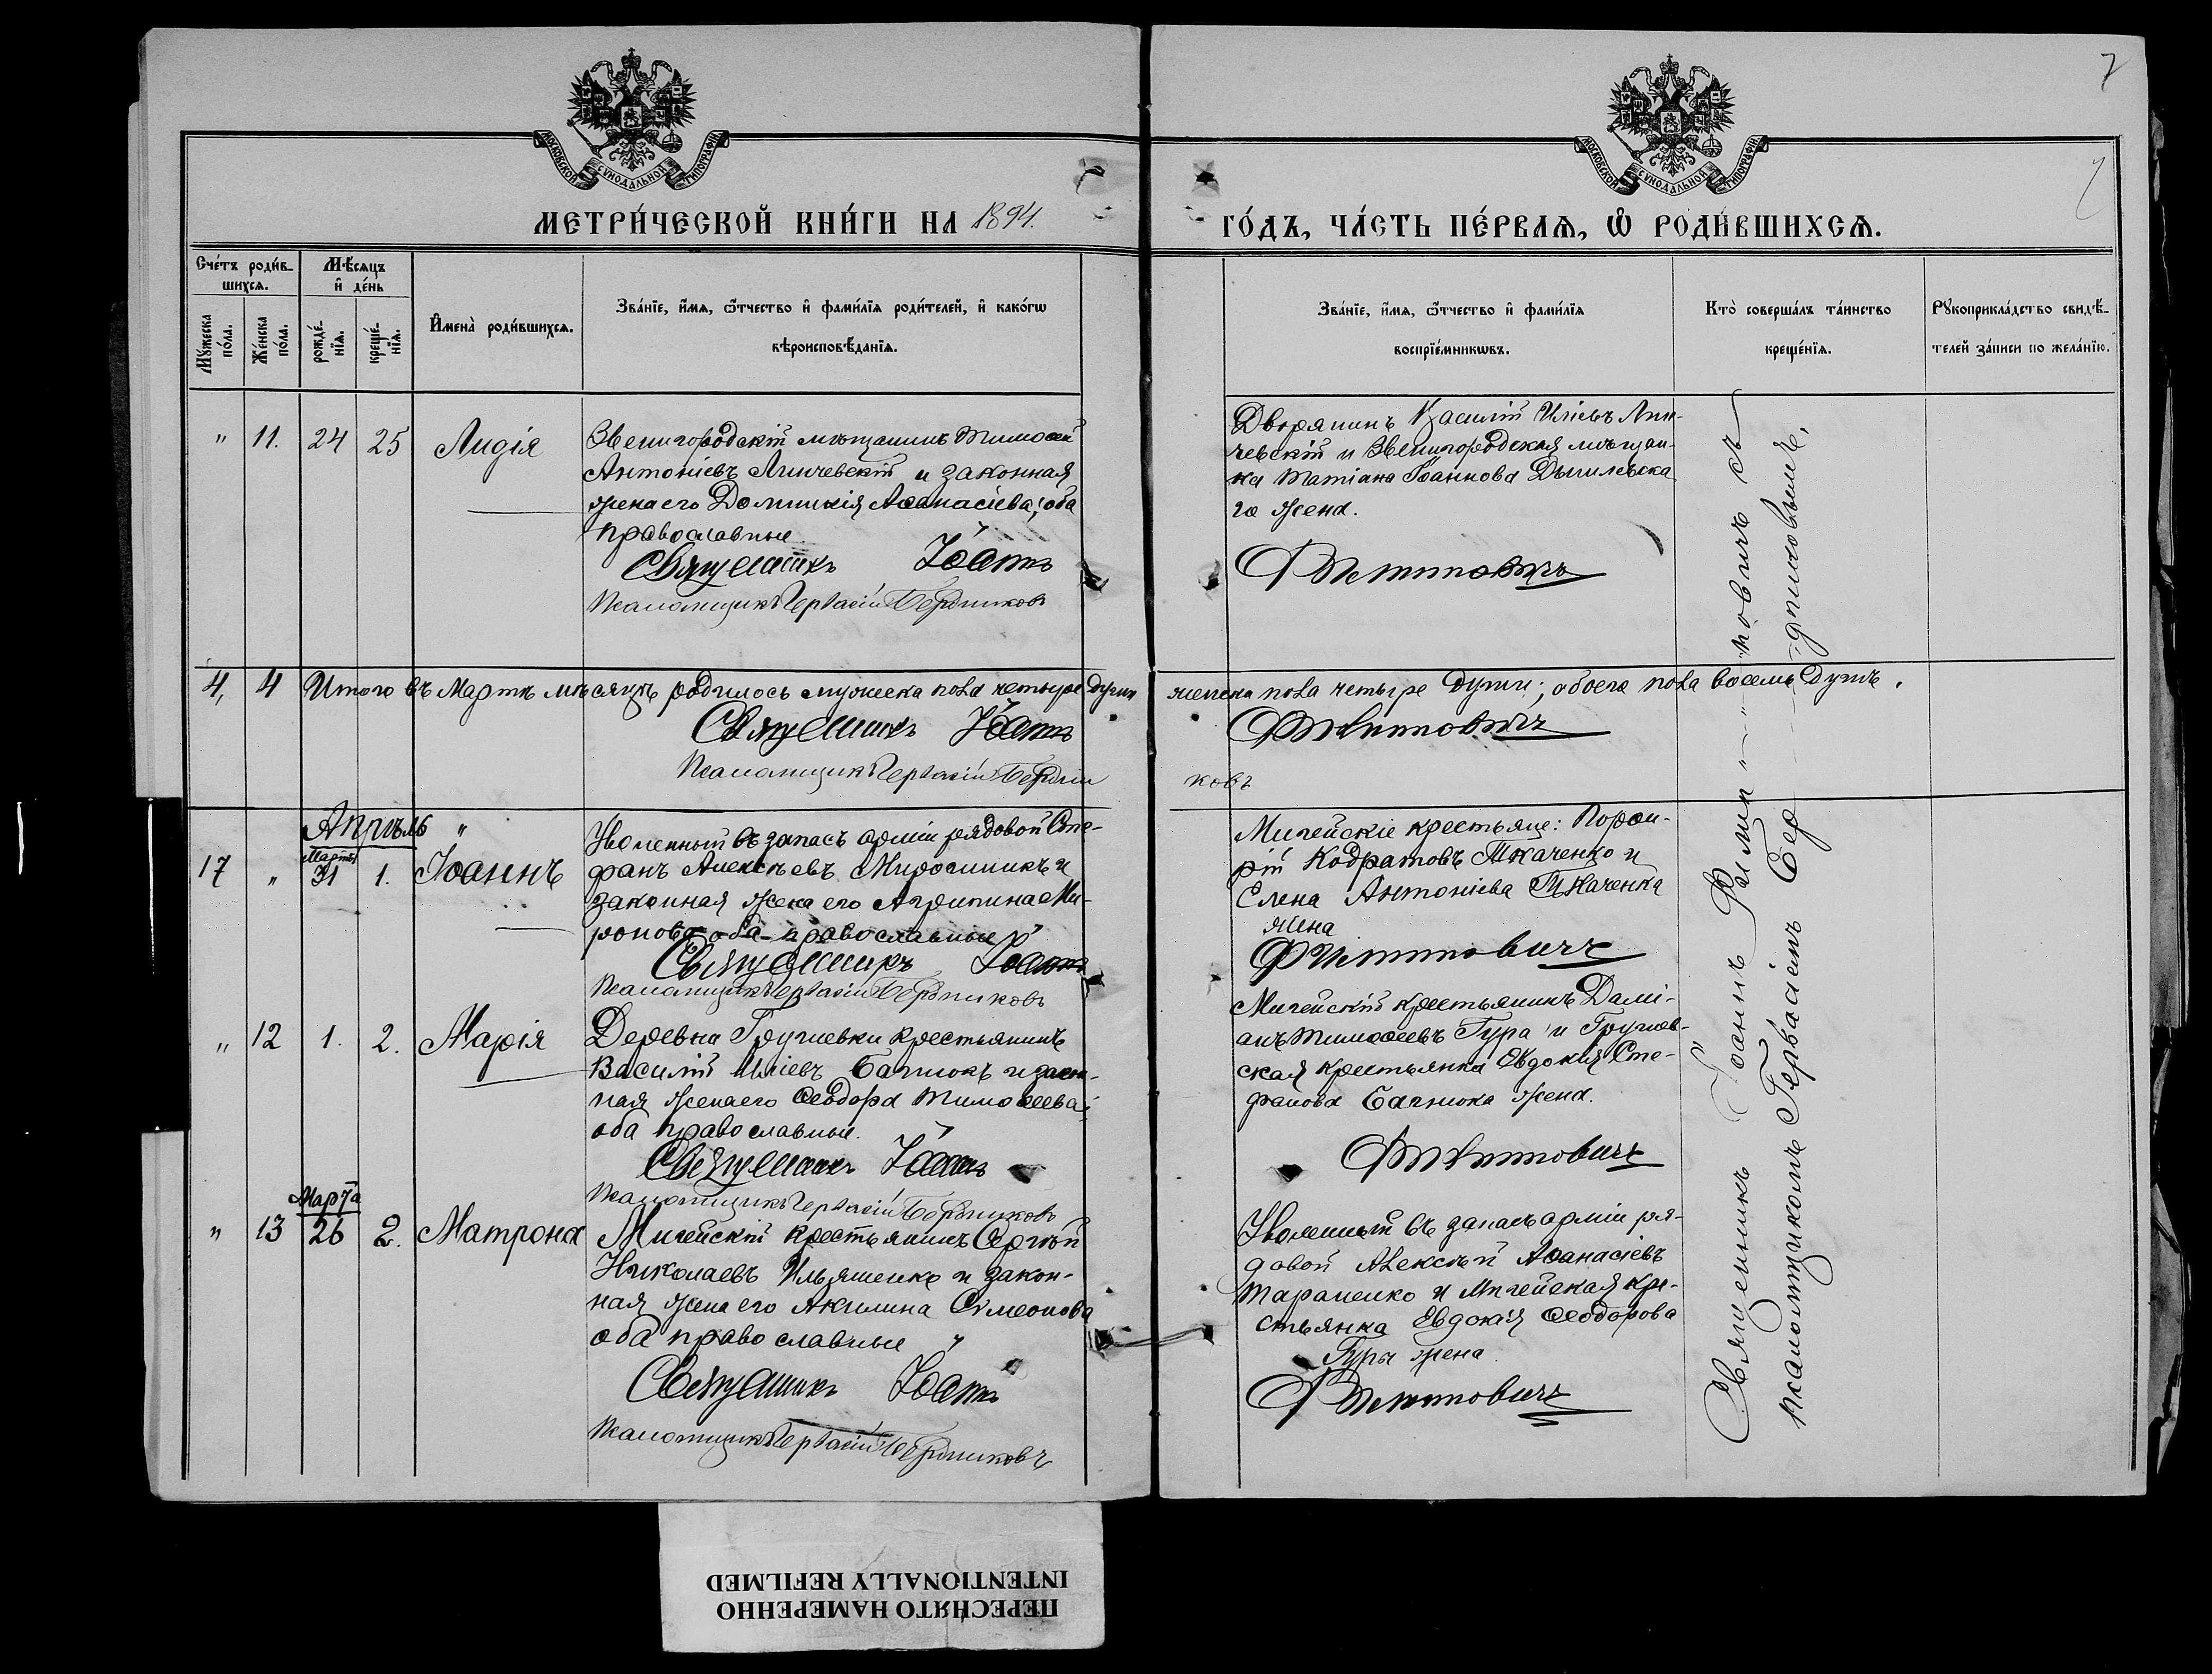 7
МОСКОВСКОЙ СѴНОДАЛЬНОЙ ТИПОГРАФІИ
МОСКОВСКОЙ СѴНОДАЛЬНОЙ ТИПОГРАФІИ
МЕТРИ́ЧЕСКОЙ КНИ́ГИ НА 1894.
ГО́ДЪ, ЧА́СТЬ ПЕ́РВАѦ, Ѽ РОДИ́ВШИХСѦ.
Сче́тъ роди́в-
шихсѧ.
Мꙋ́жеска
по́ла.
Же́нска
по́ла.
Мѣ́сѧцъ
и҆ де́нь
рожде́-
нїѧ.
креще́-
нїѧ.
И҆мена̀ роди́вшихсѧ.
Зва́нїе, и҆́мѧ, ѻ҆́тчество и҆ фами́лїѧ роди́телей, и҆ како́гѡ
вѣроисповѣ́данїѧ.
Зва́нїе, и҆́мѧ, ѻ҆́тчество и҆ фами́лїѧ
воспрїе́мникѡвъ.
Кто̀ соверша́лъ та́инство
креще́нїѧ.
Рꙋкоприкла́дство свидѣ́-
телей за́писи по жела́нїю.
" 11. 24 25 Лидія
Звенигородскій мѣщанинъ Тимоѳей
Антоніевъ Линчевскій и законная
жена его Домникія Аѳанасіева; оба
православные.
Священникъ Іоаннъ
Псаломщикъ Гервасій Бердниковъ
Дворянинъ Василій Иліевъ Лин-
чевскій и Звенигородская мѣщан-
ка Татіана Іоаннова
го жена.
Филиповичъ
4, 4 Итого въ Мартѣ мѣсяцѣ родилось мужеска пола четыре души
женска пола четыре души; обоего пола восемь душъ.
Священникъ Іоаннъ
Филиповичъ
Псаломщикъ Гервасій Бердни
ковъ
Апрѣль "
17 " Марта 31 1. Іоаннъ
Уволенный въ запасъ арміи рядовой Сте-
фанъ Алексѣевъ Мирошникъ и
законная жена его Агрипина Ми-
ронова оба православные
Священникъ Іоаннъ
Псаломщикъ Гервасій Бердниковъ
Мигейскіе крестьяне: Порфи-
рій Кодратовъ Ткаченко и
Елена Антоніева Ткаченка
жена
Филиповичъ
" 12 1. 2. Марія
Деревни Грушевки крестьянинъ
Василій Иліевъ Багнюкъ и закон-
ная жена его Ѳеодора Тимоѳеева;
оба православные.
Священникъ Іоаннъ
Псаломщикъ Гервасій Бердниковъ
Мигейскій крестьянинъ Дамі-
анъ Тимоѳеевъ Гура и Грушев-
ская крестьянка Евдокія Сте-
фанова Багнюка жена.
Филиповичъ
" 13 Марта 26 2. Матрона
Мигейскій крестьянинъ Сергѣй
Николаевъ Ильяшенко и закон-
ная жена его Акилина Симеонова
оба православные
Священникъ Іоаннъ
Псаломщикъ Гервасій Бердниковъ
Уволенный въ запасъ арміи ря-
довой Алексѣй Аѳанасіевъ
Тараненко и Мигейская кре-
стьянка Евдокія Ѳеодорова
Гуры жена.
Филиповичъ
Священникъ Іоаннъ Филиповичъ съ
псаломщикомъ Гервасіемъ Бердниковымъ.
ПЕРЕСНЯТО НАМЕРЕННО
INTENTIONALLY REFILMED